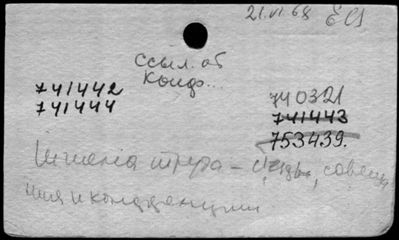 21.VI.68
Ссыл. об
Конф...
741442
741444
740321
741443
753439.
Шшена штура – съезды, совеща
ния и конференции